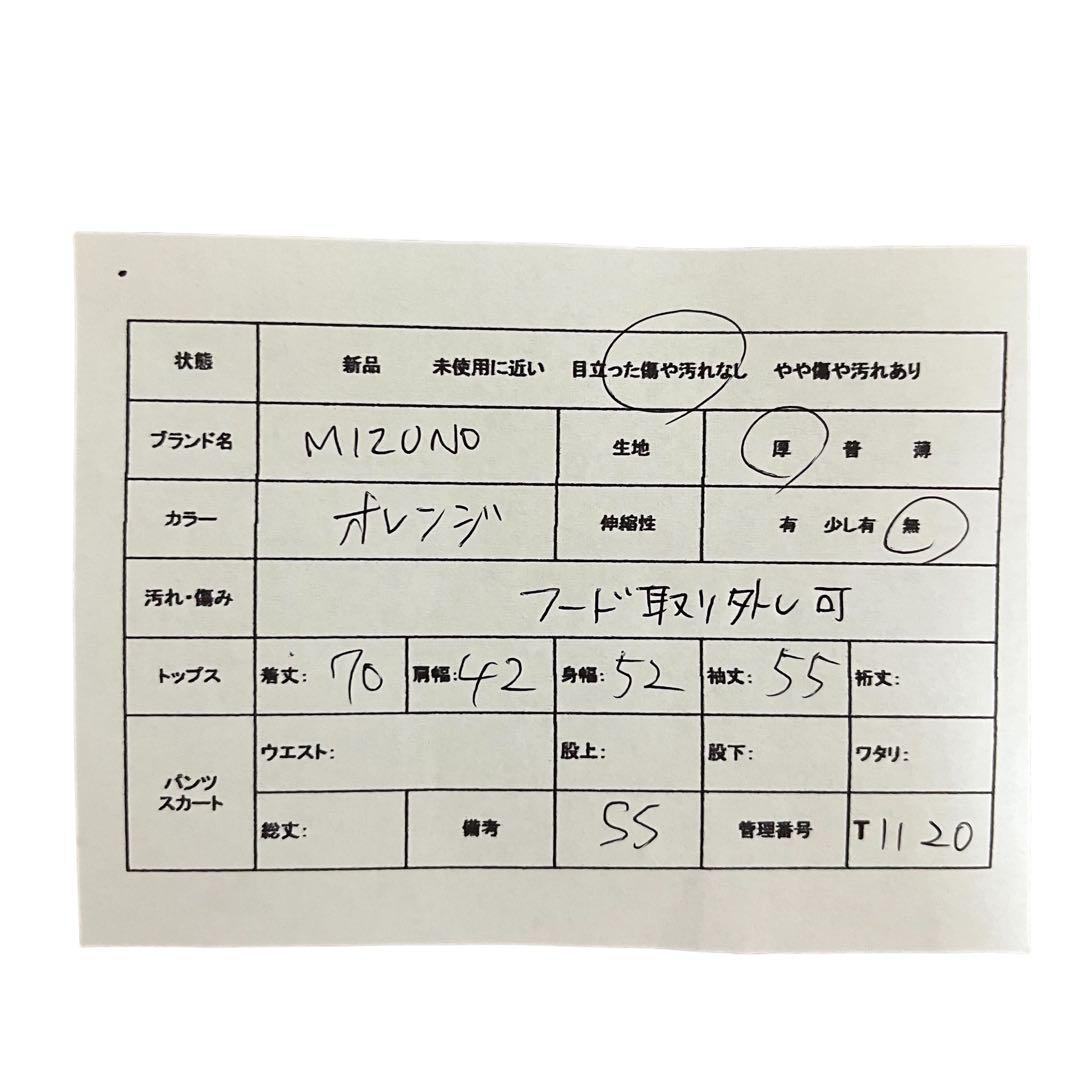 状態 新品 未使用に近い 目立った傷や汚れなし やや傷や汚れあり
ブランド名 MIZUNO 生地 厚 普 薄
カラー オレンジ 伸縮性 有 少し有 無
汚れ・傷み フード取り外し可
トップス 着丈: 70 肩幅: 42 身幅: 52 袖丈: 55 裄丈:
パンツ スカート
ウエスト: 股上: 股下: ワタリ:
総丈: 備考 SS 管理番号 T1120